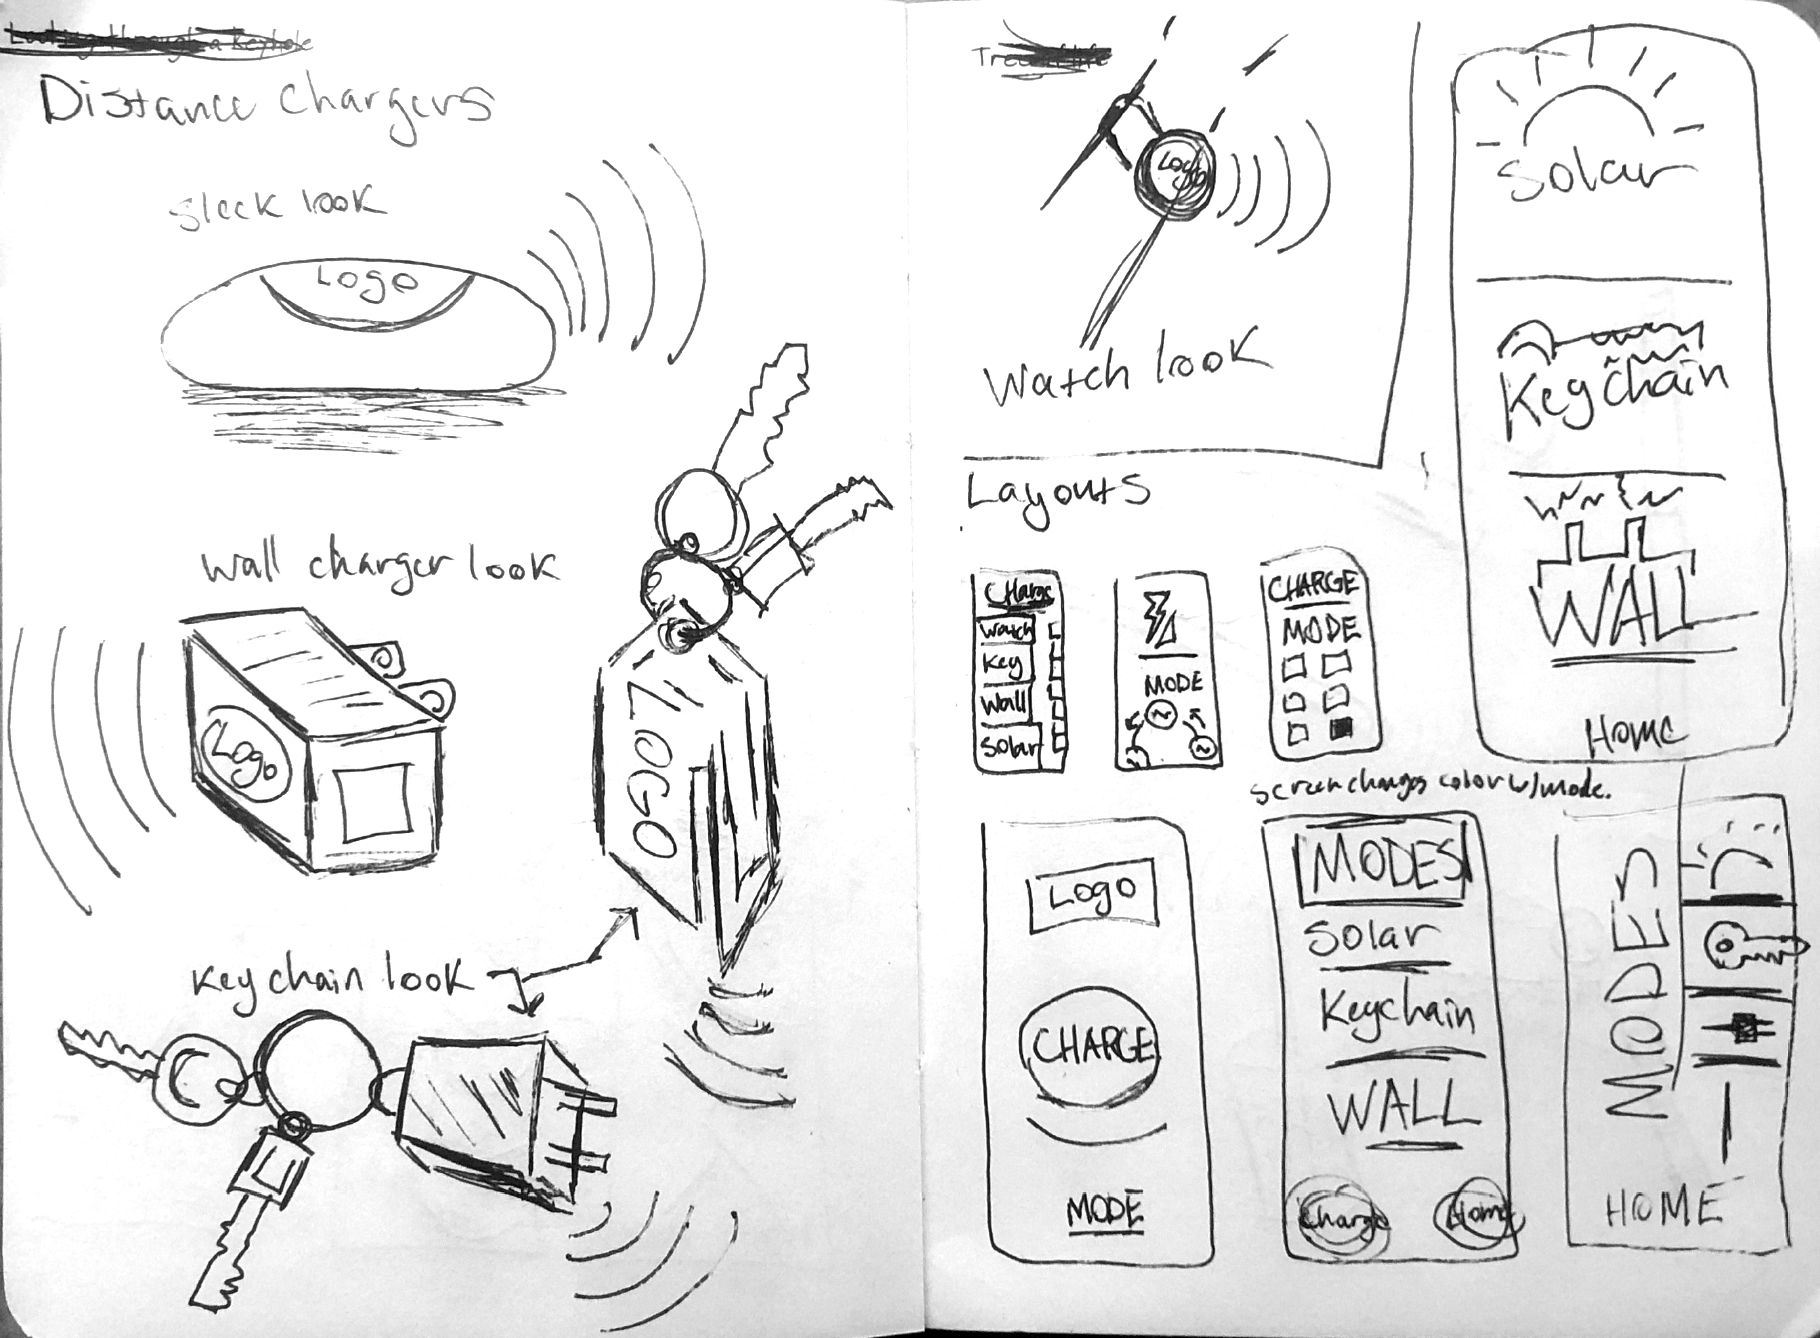 Looking through a Keyhole
Distance Chargers
Sleek look
Logo
Wall charger look
Logo
LOGO
Keychain look
Tree of life
Logo
Watch look
Solar
Keychain
WALL
HOME
Layouts
CHarge
Watch
Key
Wall
Solar
MODE
CHARGE
MODE
Screen changes color w/mode.
Logo
CHARGE
MODE
MODES
Solar
Keychain
WALL
Charge
Home
MODES
HOME